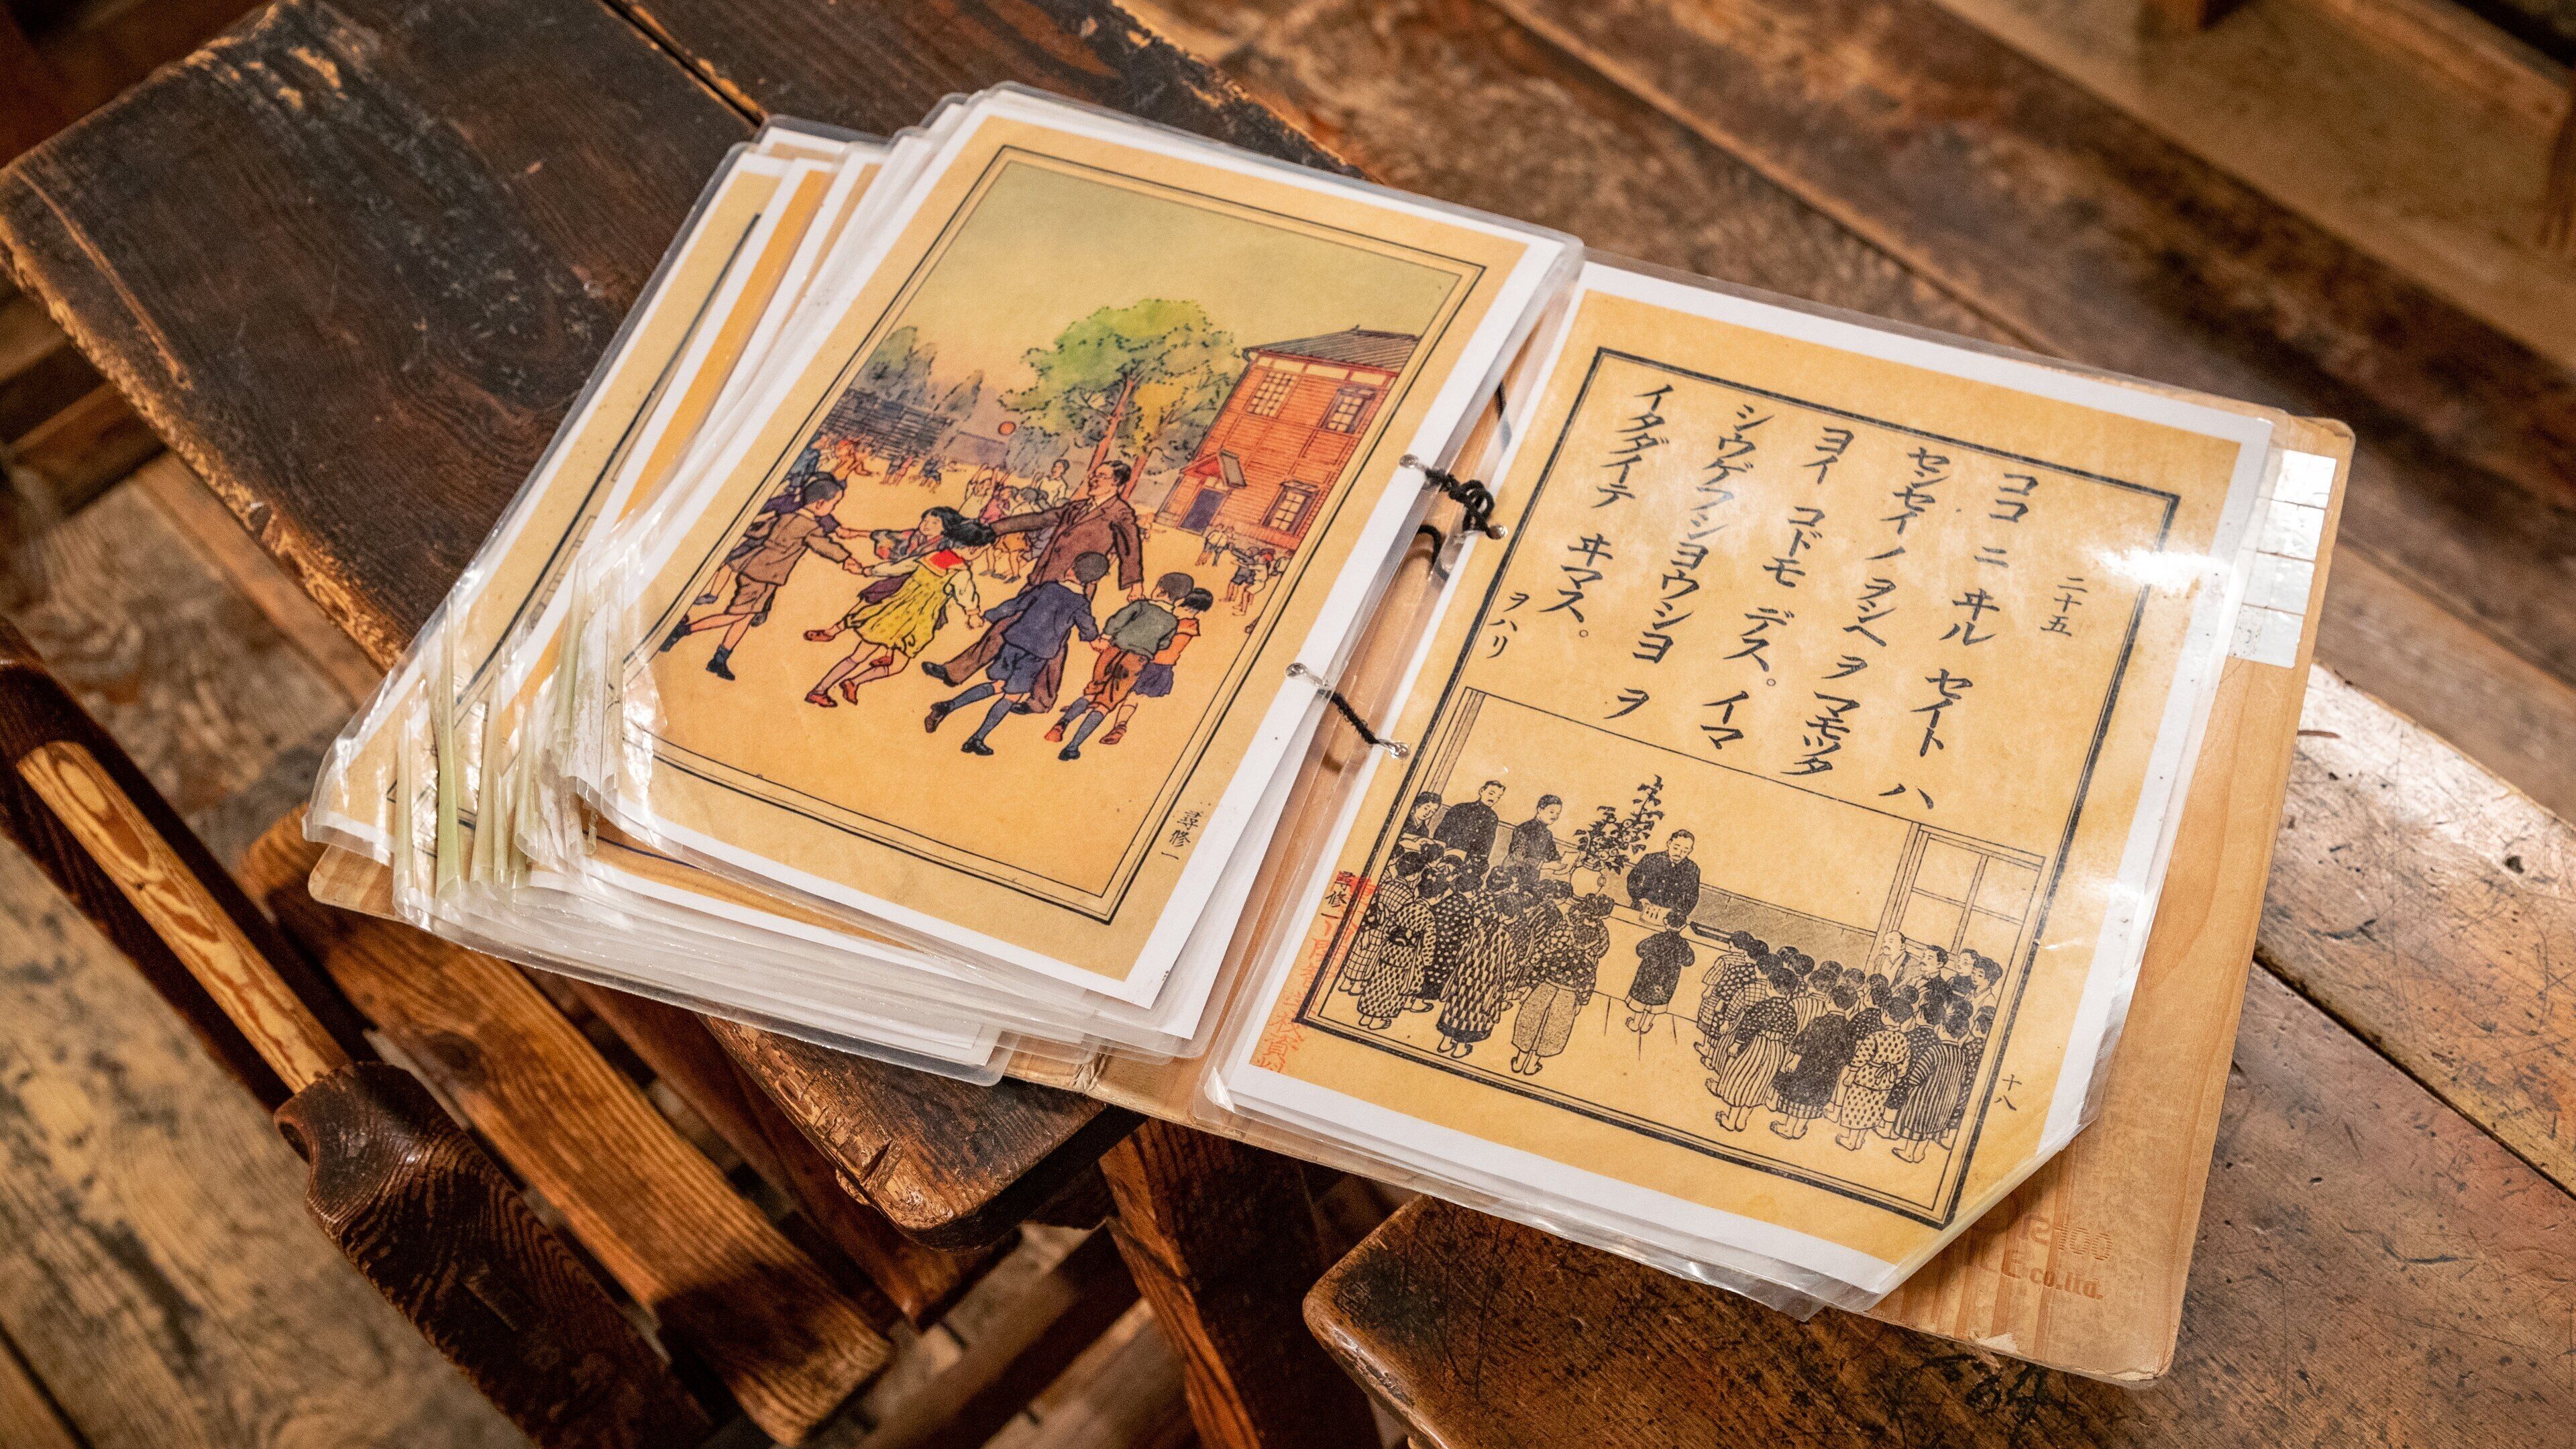 二十五
ココ ニ ヰル セイト ハ
センセイ ノ ヲシヘ ヲ マモッタ
ヨイ コドモ デス。イマ
シウゲフショウショ ヲ
イタダイテ ヰマス。
ヲハリ
十八
尋修一
尋修一